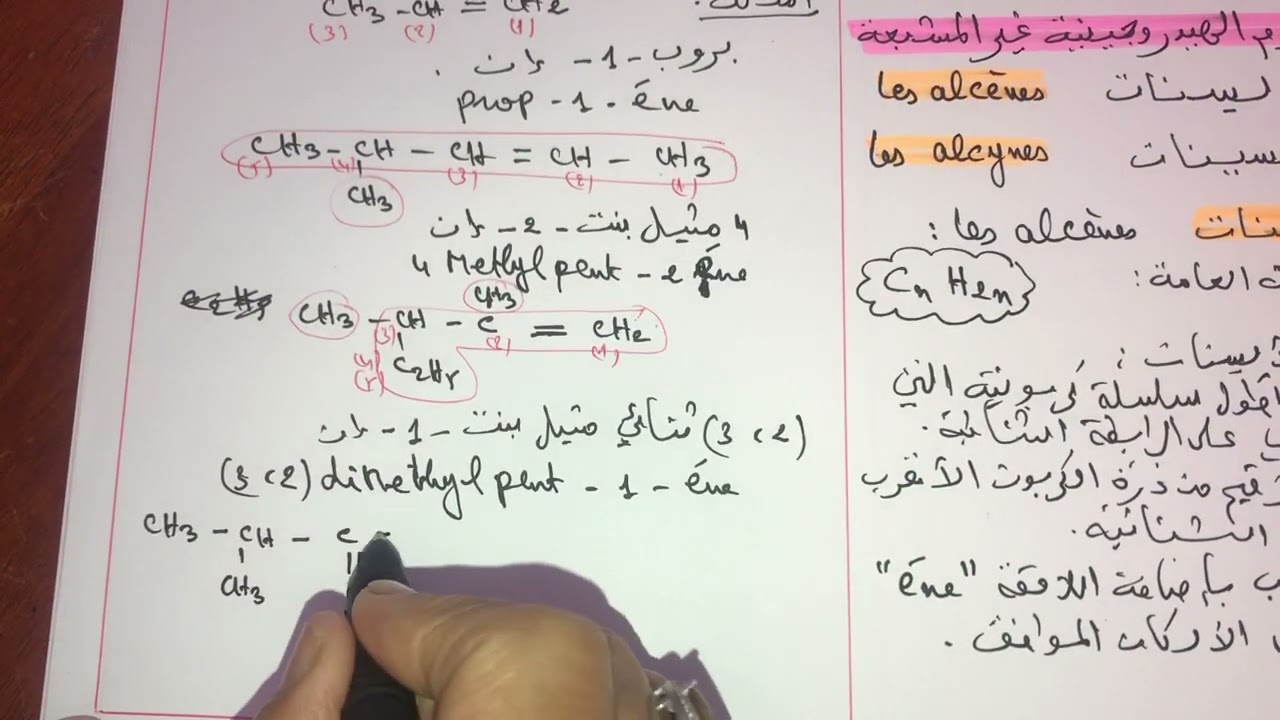 CH3 - CH = CH2
(3) (2) (1)
بروب - 1 - ان
prop - 1 - ène
CH3 - CH - CH = CH - CH3
(5) (4) (3) (2) (1)
CH3
4 مثيل بنت - 2 - ان
4 Methyl pent - 2 ène
CH3
CH3 - CH - C = CH2
(3) (2) (1)
(4) C2H5
(5)
(2 ، 3) ثنائي مثيل بنت - 1 - ان
(3 ، 2) dimethyl pent - 1 - ène
CH3 - CH - C -
CH3
الهيدروجينية غير المشبعة
les alcènes
les alcynes
les alcènes :
العامة :
Cn H2n
أطول سلسلة كربونية التي
على الرابطة الثنائية .
من ذرة الكربون الأقرب
الثنائية .
بإضافة اللاحقة "ène"
الألكان الموافق .